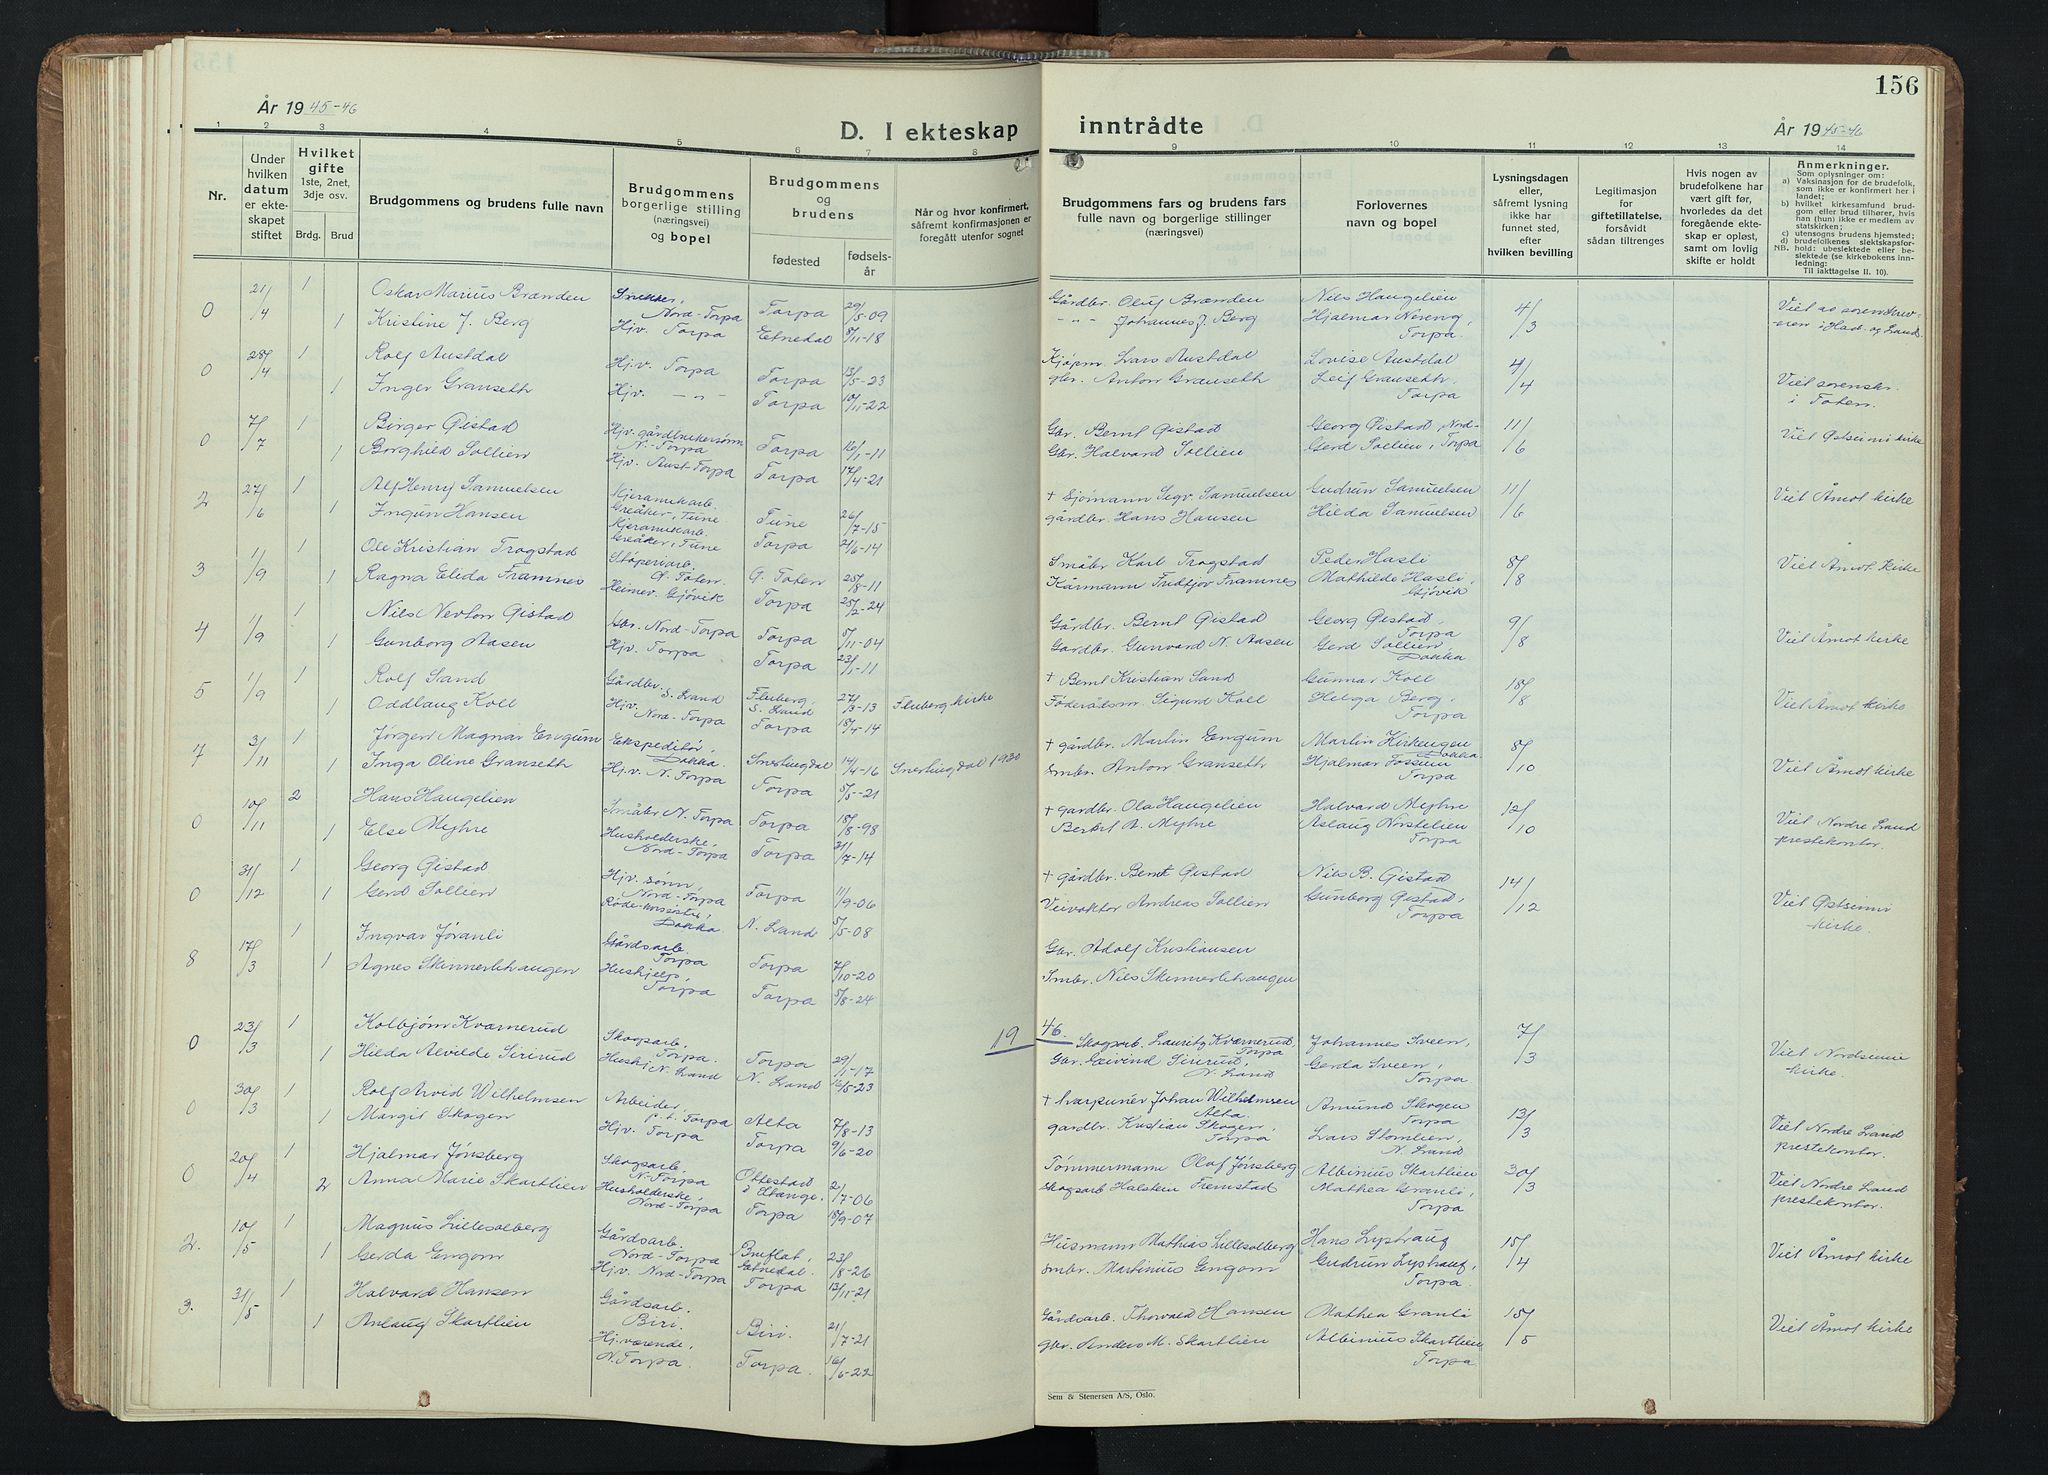 156
År 1945-46
D. I ekteskap inntrådte
År 1945-46
1 2 3 4 5 6 7 8 9 10 11 12 13 14
Nr.
Under hvilken datum er ekteskapet stiftet
Hvilket gifte 1ste, 2net, 3dje osv.
Brdg. Brud
Brudgommens og brudens fulle navn
Brudgommens borgerlige stilling (næringsvei) og bopel
Brudgommens og brudens
fødested
fødselsår
Når og hvor konfirmert, såfremt konfirmasjonen er foregått utenfor sognet
Brudgommens fars og brudens fars fulle navn og borgerlige stillinger (næringsvei)
Forlovernes navn og bopel
Lysningsdagen eller, såfremt lysning ikke har funnet sted, efter hvilken bevilling
Legitimasjon for giftetillatelse, forsåvidt sådan tiltrenges
Hvis nogen av brudefolkene har vært gift før, hvorledes da det foregående ekteskap er opløst, samt om lovlig skifte er holdt
Anmerkninger.
Som oplysninger om:
a) Vaksinasjon for de brudefolk, som ikke er konfirmert her i landet;
b) hvilket kirkesamfund brudgom eller brud tilhører, hvis han (hun) ikke er medlem av statskirken;
c) utensogns brudens hjemsted;
d) brudefolkenes slektskapsforhold: ubeslektede eller beslektede (se kirkebokens innledning:
NB. Til iakttagelse II. 10).
0 21/4 1 Oskar Marius Brænden Snekker, Nord-Torpa Torpa 29/5-09 Gårdbr. Oluf Brænden Nils Haugelien 4/3
1 Kristine J. Berg Hjv. Torpa Etnedal 8/11-18 -"- Johannes J. Berg Hjalmar Nereng, Torpa
0 28/4 1 Rolf Austdal Hj.v. Torpa Torpa 13/5-23 Kjøpm. Lars Austdal Lovise Austdal 4/4 Viet sorenskr. i Toten
1 Inger Granseth Hjv. -"- Torpa 10/11-22 gbr. Anton Granseth Leif Granseth, Torpa
0 7/7 1 Birger Gistad Hjv. gårdbrukersønn N.-Torpa Torpa 16/1-11 Gbr. Bernt Gistad Georg Gistad, Nord- 11/6 Viet Østsinni kirke
1 Borghild Sollien Hjv. Aust-Torpa Torpa 17/4-21 Gbr. Halvard Sollien Gerd Sollien, Torpa
2 27/6 1 Alf Henry Samuelsen Kjeramikarb. Greåker, Tune Tune 26/7-15 + Sjømann Sigv. Samuelsen Gudrun Samuelsen 11/6 Viet Åmot kirke
1 Ingun Hansen Kjeramikarb. Greåker, Tune Torpa 21/6-14 gårdbr. Hans Hansen Hilda Samuelsen
3 1/9 1 Ole Kristian Trogstad Støperiarb. Ø. Toten Ø. Toten 25/8-11 Småbr. Karl Trogstad Peder Hasli 8/8 Viet Åmot kirke
1 Ragna Elida Framnes Heimev. Gjøvik Torpa 25/2-24 Kårmann Fridtjov Framnes Mathilde Hasli, Gjøvik
4 1/9 1 Nils Nevton Gistad Gbr. Nord-Torpa Torpa 5/11-04 Gårdbr. Bernt Gistad Georg Gistad, Torpa 9/8 Viet Åmot kirke
1 Gunborg Aasen Hjv. Torpa Torpa 23/1-11 Gardbr. Gunvard N. Aasen Gerd Sollien, Dokka
5 1/9 1 Rolf Sand Gårdbr. S. Land Fluberg, S. Land 27/3-13 Fluberg kirke + Bernt Kristian Sand Gunnar Koll 18/8 Viet Åmot kirke
1 Oddlaug Koll Hjv. Nord-Torpa Torpa 18/4-14 Føderådsm. Sigurd Koll Helga Berg, Torpa
7 3/11 1 Jørgen Magnar Engum Ekspeditør, Dokka Snertingdal 14/4-16 Snertingdal 1930 + gårdbr. Martin Engum Martin Kirkengen Dokka 8/10 Viet Åmot kirke
1 Inga Oline Granseth Hj.v. N. Torpa Torpa 5/5-21 Smbr. Anton Granseth Hjalmar Fossum Torpa
0 10/11 2 Hans Haugelien Småbr. N. Torpa Torpa 18/8-98 + gardbr. Ola Haugelien Halvard Myhre 12/10 Viet Nordre Land prestekontor.
1 Else Myhre Husholderske, Nord-Torpa Torpa 21/7-14 Bertel A. Myhre Aslaug Norstelien Torpa
0 31/12 1 Georg Gistad Hjv. sønn, Nord-Torpa Torpa 11/9-06 + gårdbr. Bernt Gistad Nils B. Gistad 14/12 Viet Østsinni kirke.
1 Gerd Sollien Røde-korssøster, Dokka N. Land 5/5-08 Veivokter Andreas Sollien Gunborg Gistad, Torpa
8 17/3 1 Ingvar Jøranli Gårdsarb. Torpa Torpa 7/10-20 Gbr. Adolf Kristiansen
1 Agnes Skinnerlihaugen Hushjelp, Torpa Torpa 5/8-24 Smbr. Nils Skinnerlihaugen
1946
0 23/3 1 Kolbjørn Kværnerud Skogsarb. Torpa. Torpa 29/1-17 Skogsarb. Lauritz Kværnerud Torpa Johannes Sveen, 7/3 Viet Nordsinni kirke.
1 Hilda Alvilde Sirirud Hushj. N. Land N. Land 16/5-23 Gbr. Eivind Sirirud, N. Land Gerda Sveen, Torpa
0 30/3 1 Rolf Arvid Wilhelmsen Arbeider, p.t. Torpa Alta 7/8-13 + harpunér Johan Wilhelmsen Alta. Amund Skogen Torpa 13/3 Viet Nordre Land prestekontor.
1 Margit Skogen Hjv. Torpa Torpa 9/6-20 gardbr. Kristian Skogen, Torpa Lars Stomlien, N. Land
0 20/4 1 Hjalmar Jønsberg Skogsarb. N-Torpa Ottestad i Stange. 21/7-06 Tømmermann Olaf Jønsberg Albinius Skartlien 30/3 Viet Nordre Land prestekontor.
2 Anna Marie Skartlien Husholderske, Nord-Torpa Torpa 18/9-07 Skogsarb Halsten Fremstad Mathea Granli, Torpa
2. 10/5 1 Magnus Lillesolberg Gårdsarb. Nord-Torpa Bruflat, Etnedal. 23/8-26 Husmann Mathias Lillesolberg Hans Lystraug 15/4 Viet Åmot kirke
1 Gerda Engom Hjv. Nord-Torpa Torpa 13/11-21 Smbr. Martinius Engom Gudrun Lystraug, Torpa.
3. 31/5 1 Halvard Hansen Gårdsarb. Biri Biri. 21/7-21 Gårdsarb. Thorvald Hansen Mathea Granli 15/5 Viet Åmot kirke
1 Anlaug Skartlien Hj.værende, N. Torpa. Torpa. 16/6-22 gbr. Anders M. Skartlien Albinius Skartlien Torpa
Sem & Stenersen A/S, Oslo.